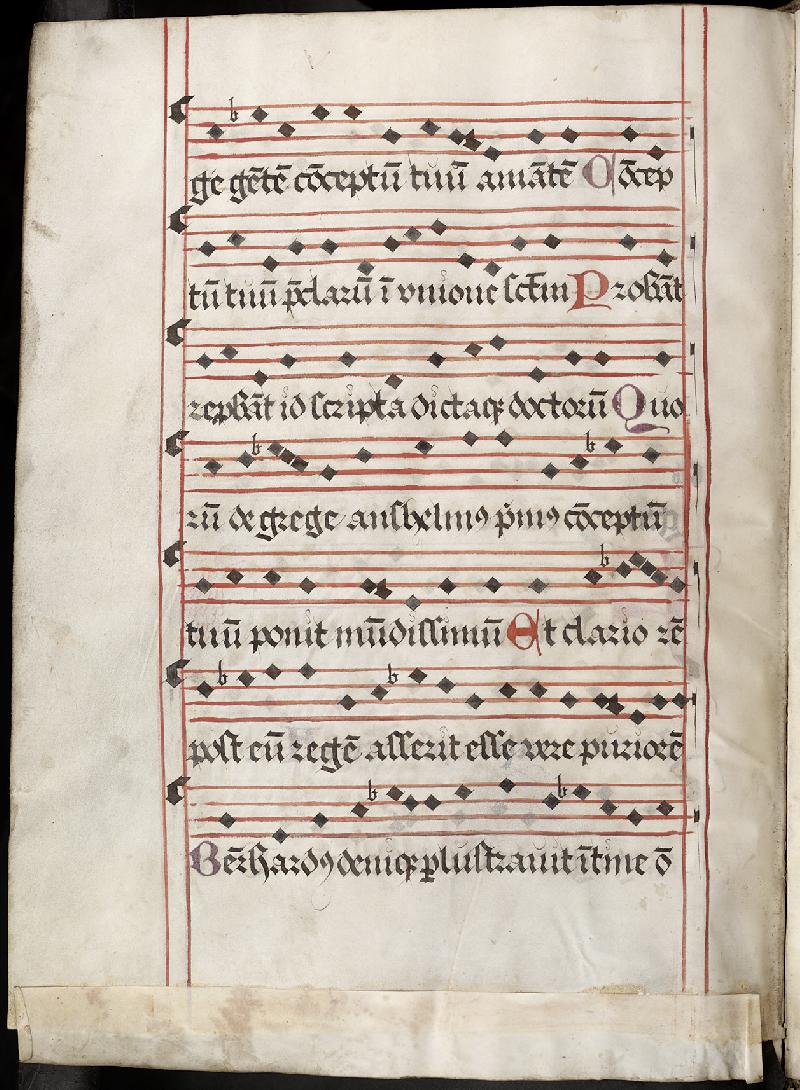 ge gētē cōceptū tuū amātē Cōcep
tū tuū p̄clarū ī vnione sc̄tm Probāt
reꝓbāt id scripta dictaqꝫ doctorū Quo
rū de grege anshelmꝰ p̄mꝰ cōceptū
tuū ponit mūdissimū Et clario rē
post eū regē asserit esse vere puriorē
Bērhardꝰ deniqꝫ ꝑlustrauit ītme ō